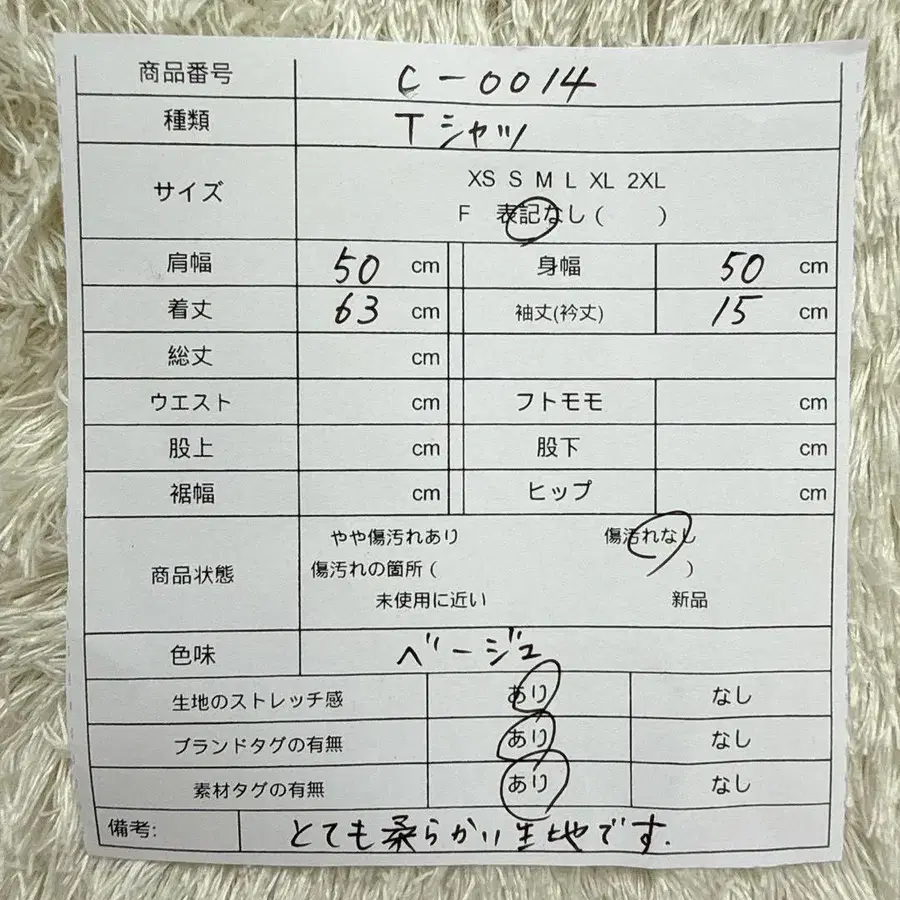 商品番号 C-0014
種類 Tシャツ
サイズ XS S M L XL 2XL
F 表記なし( )
肩幅 50 cm 身幅 50 cm
着丈 63 cm 袖丈(衿丈) 15 cm
総丈 cm
ウエスト cm フトモモ cm
股上 cm 股下 cm
裾幅 cm ヒップ cm
やや傷汚れあり 傷汚れなし
商品状態 傷汚れの箇所( )
未使用に近い 新品
色味 ベージュ
生地のストレッチ感 あり なし
ブランドタグの有無 あり なし
素材タグの有無 あり なし
備考: とても柔らかい生地です.